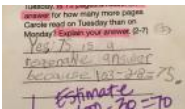 Tuesday. Is 75 pages a reasonable
answer for how many more pages
Carole read on Tuesday than on
Monday? Explain your answer. (2-7)
Yes! 75 is a
resonable answer
because 103-28=75.
Estimate
-30=70